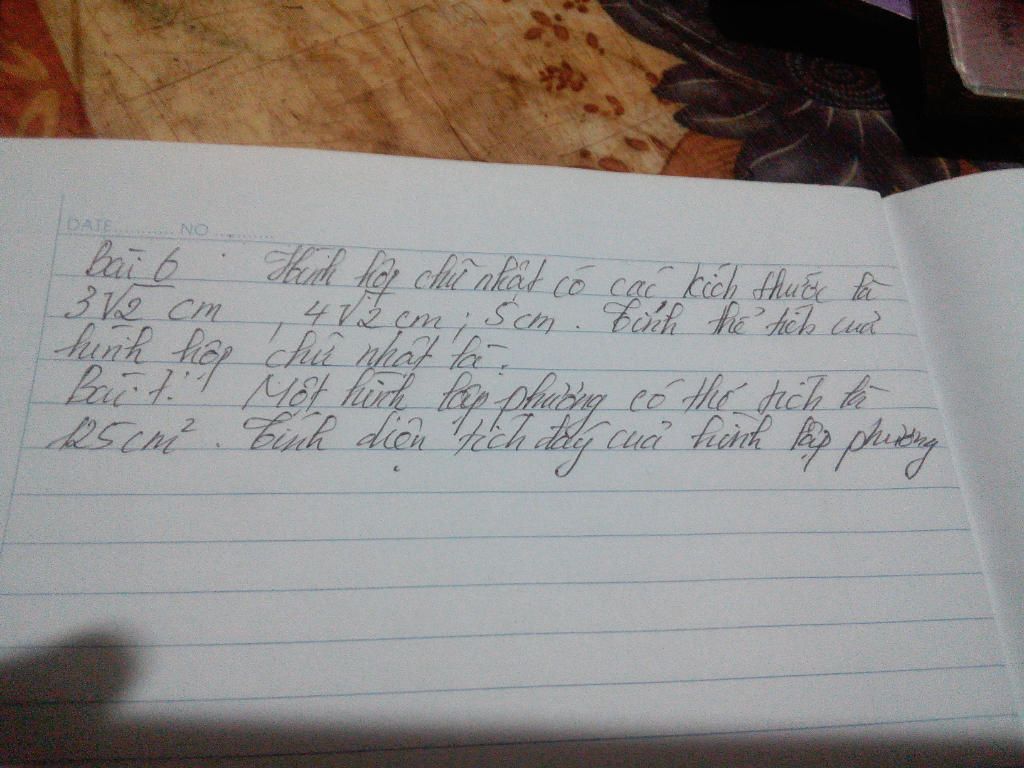 DATE............ NO ............
Bài 6 : Hình hộp chữ nhật có các kích thước là
3√2 cm , 4√2 cm ; 5cm . Tính thể tích của
hình hộp chữ nhật là.
Bài 7: Một hình lập phương có thể tích là
125cm² . Tính diện tích đáy của hình lập phương